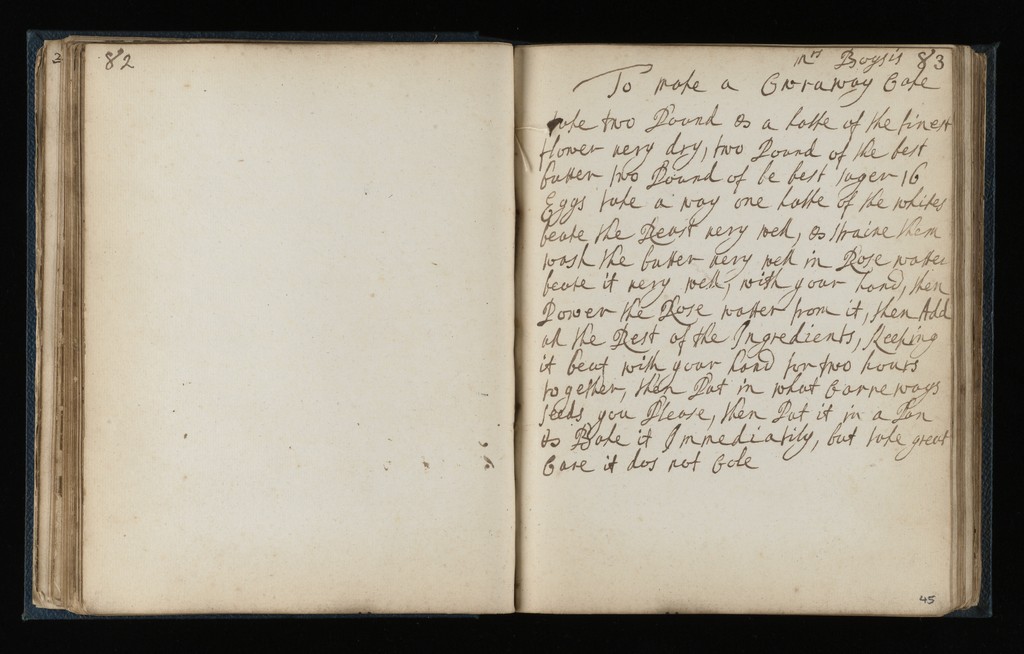 2
82
Mrs Boysis 83
To make a Carraway Cake
take two Pound & a halfe of the finest
flower very dry, two Pound of the best
butter two Pound of be best suger 16
Eggs take a way one halfe of the whites
beate the Reast very well, & straine them
wash the butter very well in Rose watter
beate it very well, with your hand, then
Power the Rose watter from it, then Add
all the Rest of the Ingredients, Keeping
it beat with your hand for two hours
together, then Put in what Carreways
seeds you Please, then Put it in a Pan
& Bake it Immediatily, but take great
Care it dos not Cole
45